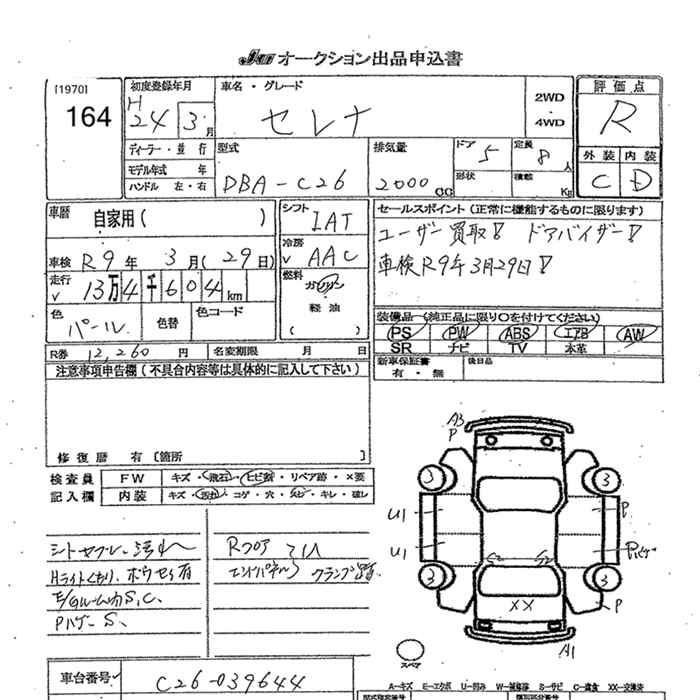 JU オークション出品申込書
[1970]
164
初度登録年月
H
24 3月
車名・グレード
セレナ
2WD
・
4WD
評価点
R
外装 内装
C D
ディーラー・並行
モデル年式 年
ハンドル 左・右
型式
DBA-C26
排気量
2000CC
ドア 5
形状
定員 8人
積載 Kg
車歴 自家用( )
車検 R9年 3月(29日)
走行 13万4千604km
シフト IAT
冷房 AAC
燃料
ガソリン
軽油
( )
色 パール
色替
色コード
R券 12,260円
名変期限 月 日
セールスポイント(正常に機能するものに限ります)
ユーザー買取! ドアバイザー!
車検R9年3月29日!
装備品(純正品に限り○を付けてください)
PS PW ABS エアB AW
SR ナビ TV 本革
新車保証書 有・無
後日品
注意事項申告欄(不具合内容等は具体的に記入して下さい)
修復歴 有〔箇所 〕
検査員
記入欄
FW キズ・飛石・ヒビ割・リペア跡・×要
内装 キズ・汚れ・コゲ・穴・スレ・キレ・破レ
シートセブレ・汚れ
Hライトくもり、ボウセイ有
E/gルーム内S,C,
Pハゲ S,
Rフロア
エンドパネル クランプ跡
A3
P
3 3
U1 P
U1 Pハゲ
S2 S2
3 3
XX P
A1
スペア
車台番号 C26-039644
A―キズ E―エクボ U―凹み W―補修跡 S―サビ C―腐食 XX―交換済
型式指定番号 類別区分番号